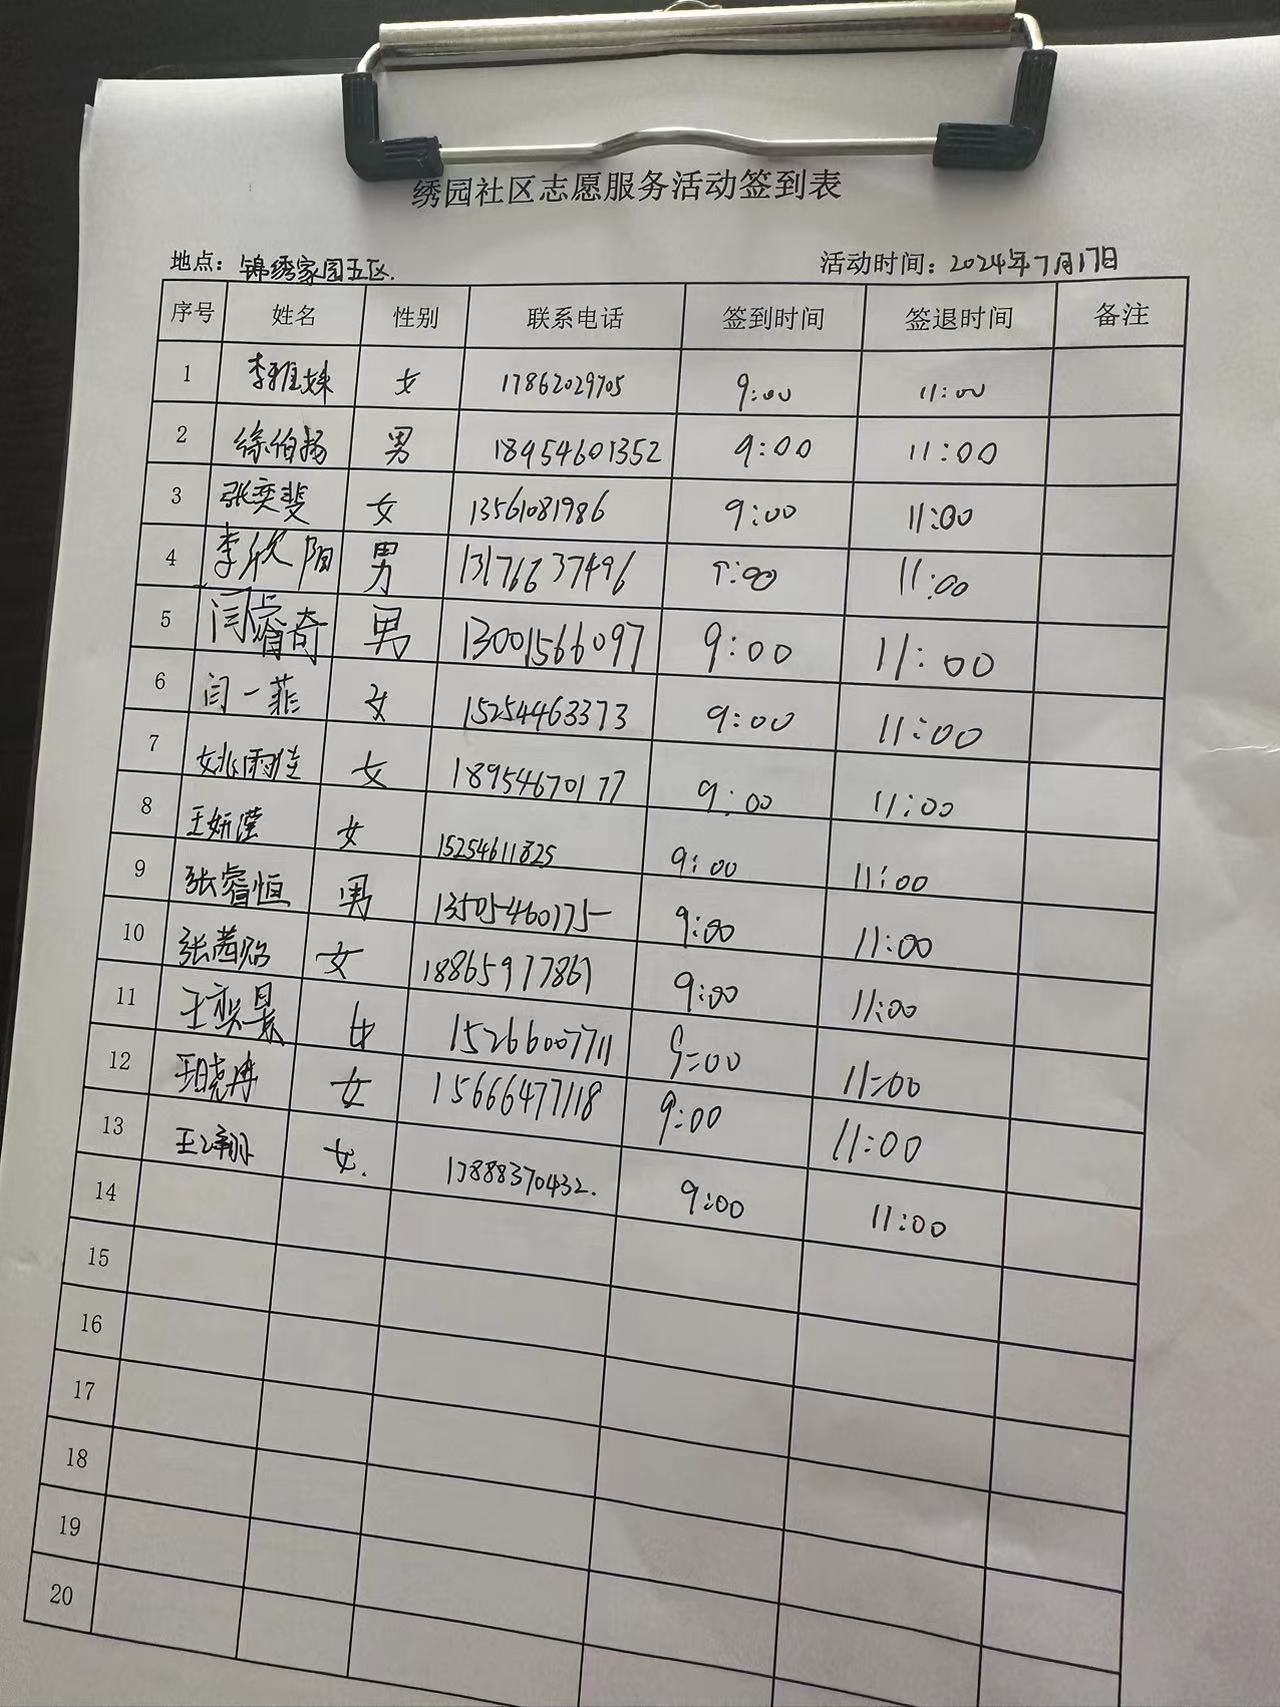 绣园社区志愿服务活动签到表
地点: 锦绣家园五区. 活动时间: 2024年7月17日
序号 姓名 性别 联系电话 签到时间 签退时间 备注
1 李雅姝 女 17862029705 9:00 11:00
2 徐伯扬 男 18954601352 9:00 11:00
3 张奕斐 女 13561081986 9:00 11:00
4 李欣阳 男 13176637496 9:00 11:00
5 闫睿奇 男 13001566097 9:00 11:00
6 闫一菲 女 15254463373 9:00 11:00
7 姚雨佳 女 18954670177 9:00 11:00
8 王妍滢 女 15254611825 9:00 11:00
9 张睿恒 男 13505460175 9:00 11:00
10 张茜 女 18865977867 9:00 11:00
11 王奕 女 15266007711 9:00 11:00
12 王晓冉 女 15666477118 9:00 11:00
13 王 女. 17888370432. 9:00 11:00
14
15
16
17
18
19
20